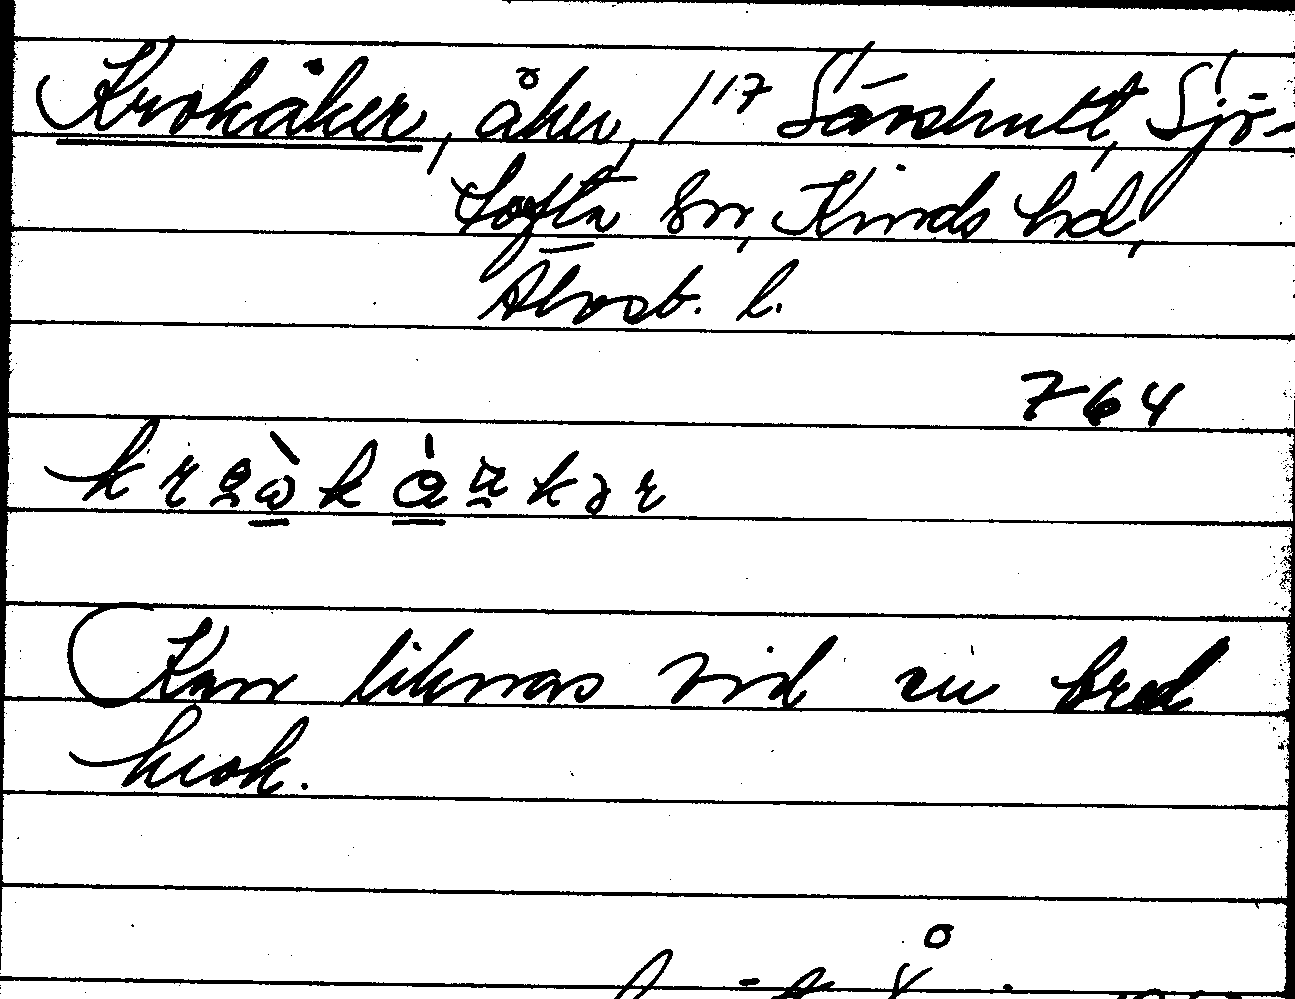 Krokåker, åker, 1/17 Särshult, Sjö-
tofta sn, Kinds hd,
Älvsb. l.
764
Kan liknas vid en bred
krok.